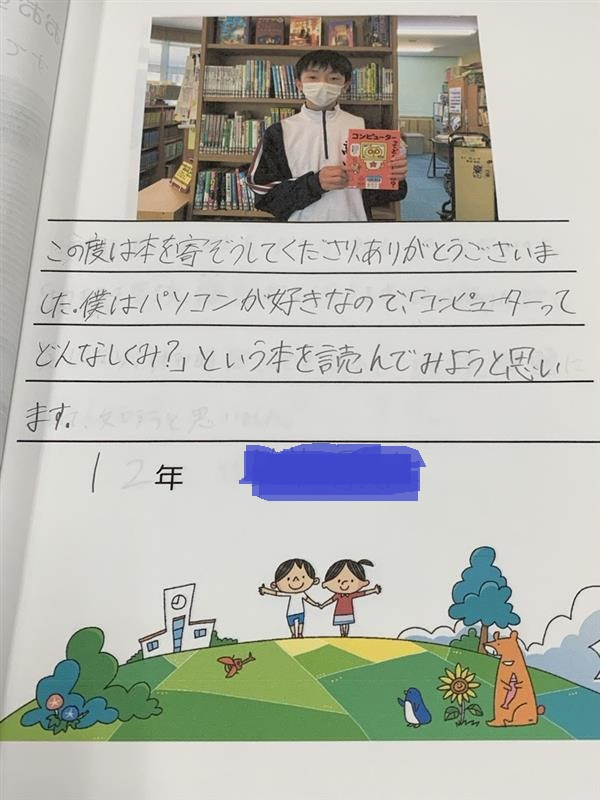 コンピューター
この度は本を寄ぞうしてくださり、ありがとうございま
した。僕はパソコンが好きなので、「コンピューターって
どんなしくみ?」という本を読んでみようと思い
ます。
1 2 年